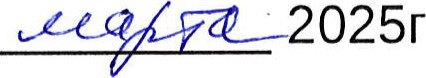 марта 2025г